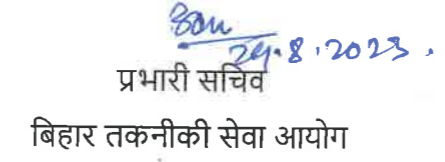 29.8.2023.
प्रभारी सचिव
बिहार तकनीकी सेवा आयोग